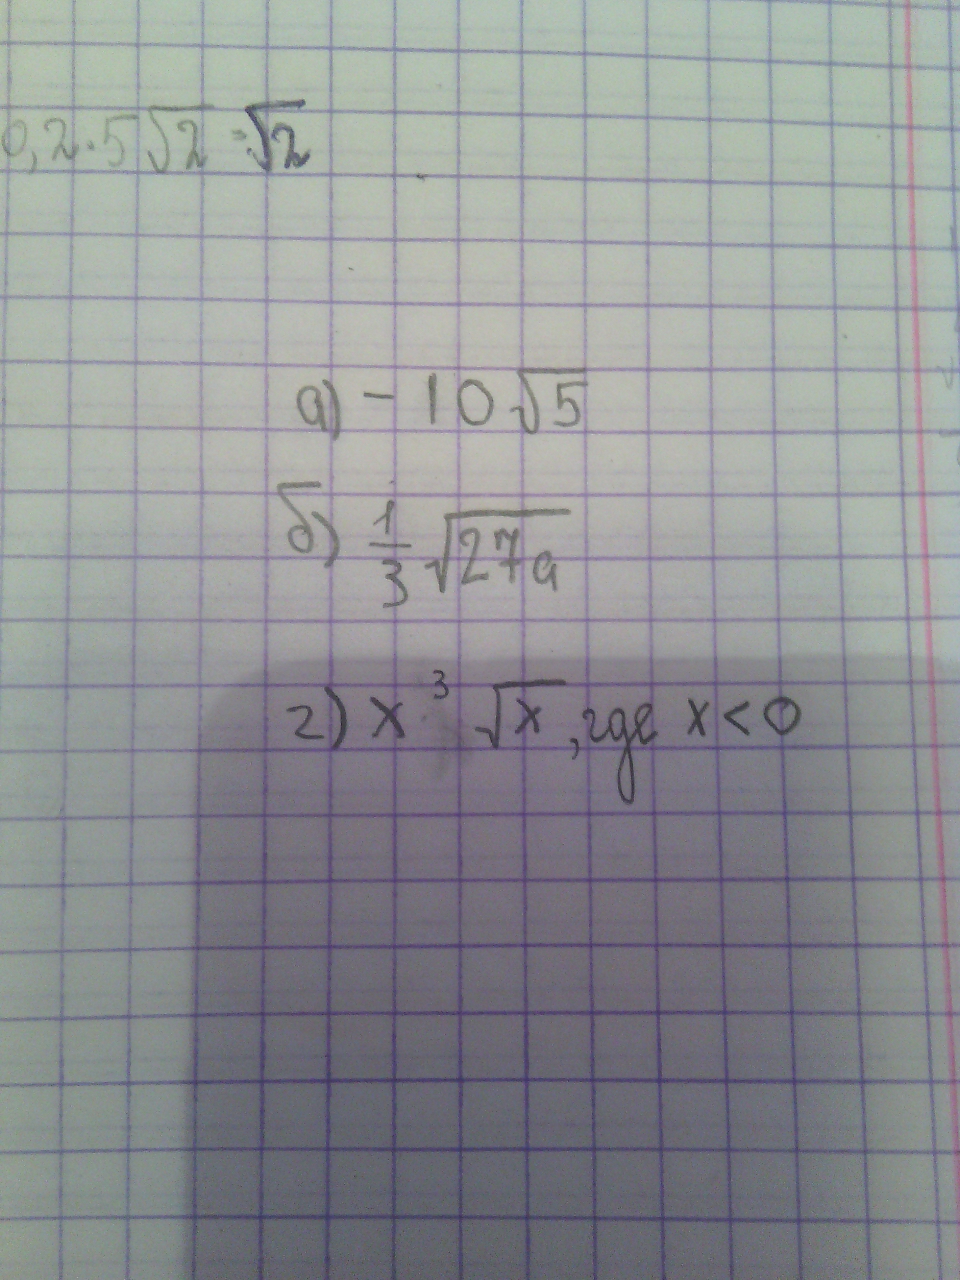 0,2·5√2 = √2
а) - 10√5
б) 1/3 √27a
г) x³ √x, где x < 0